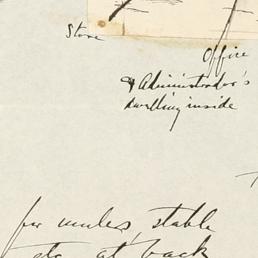 Store
Office
& Administrador's
dwelling inside
for mules, stable
etc. at back